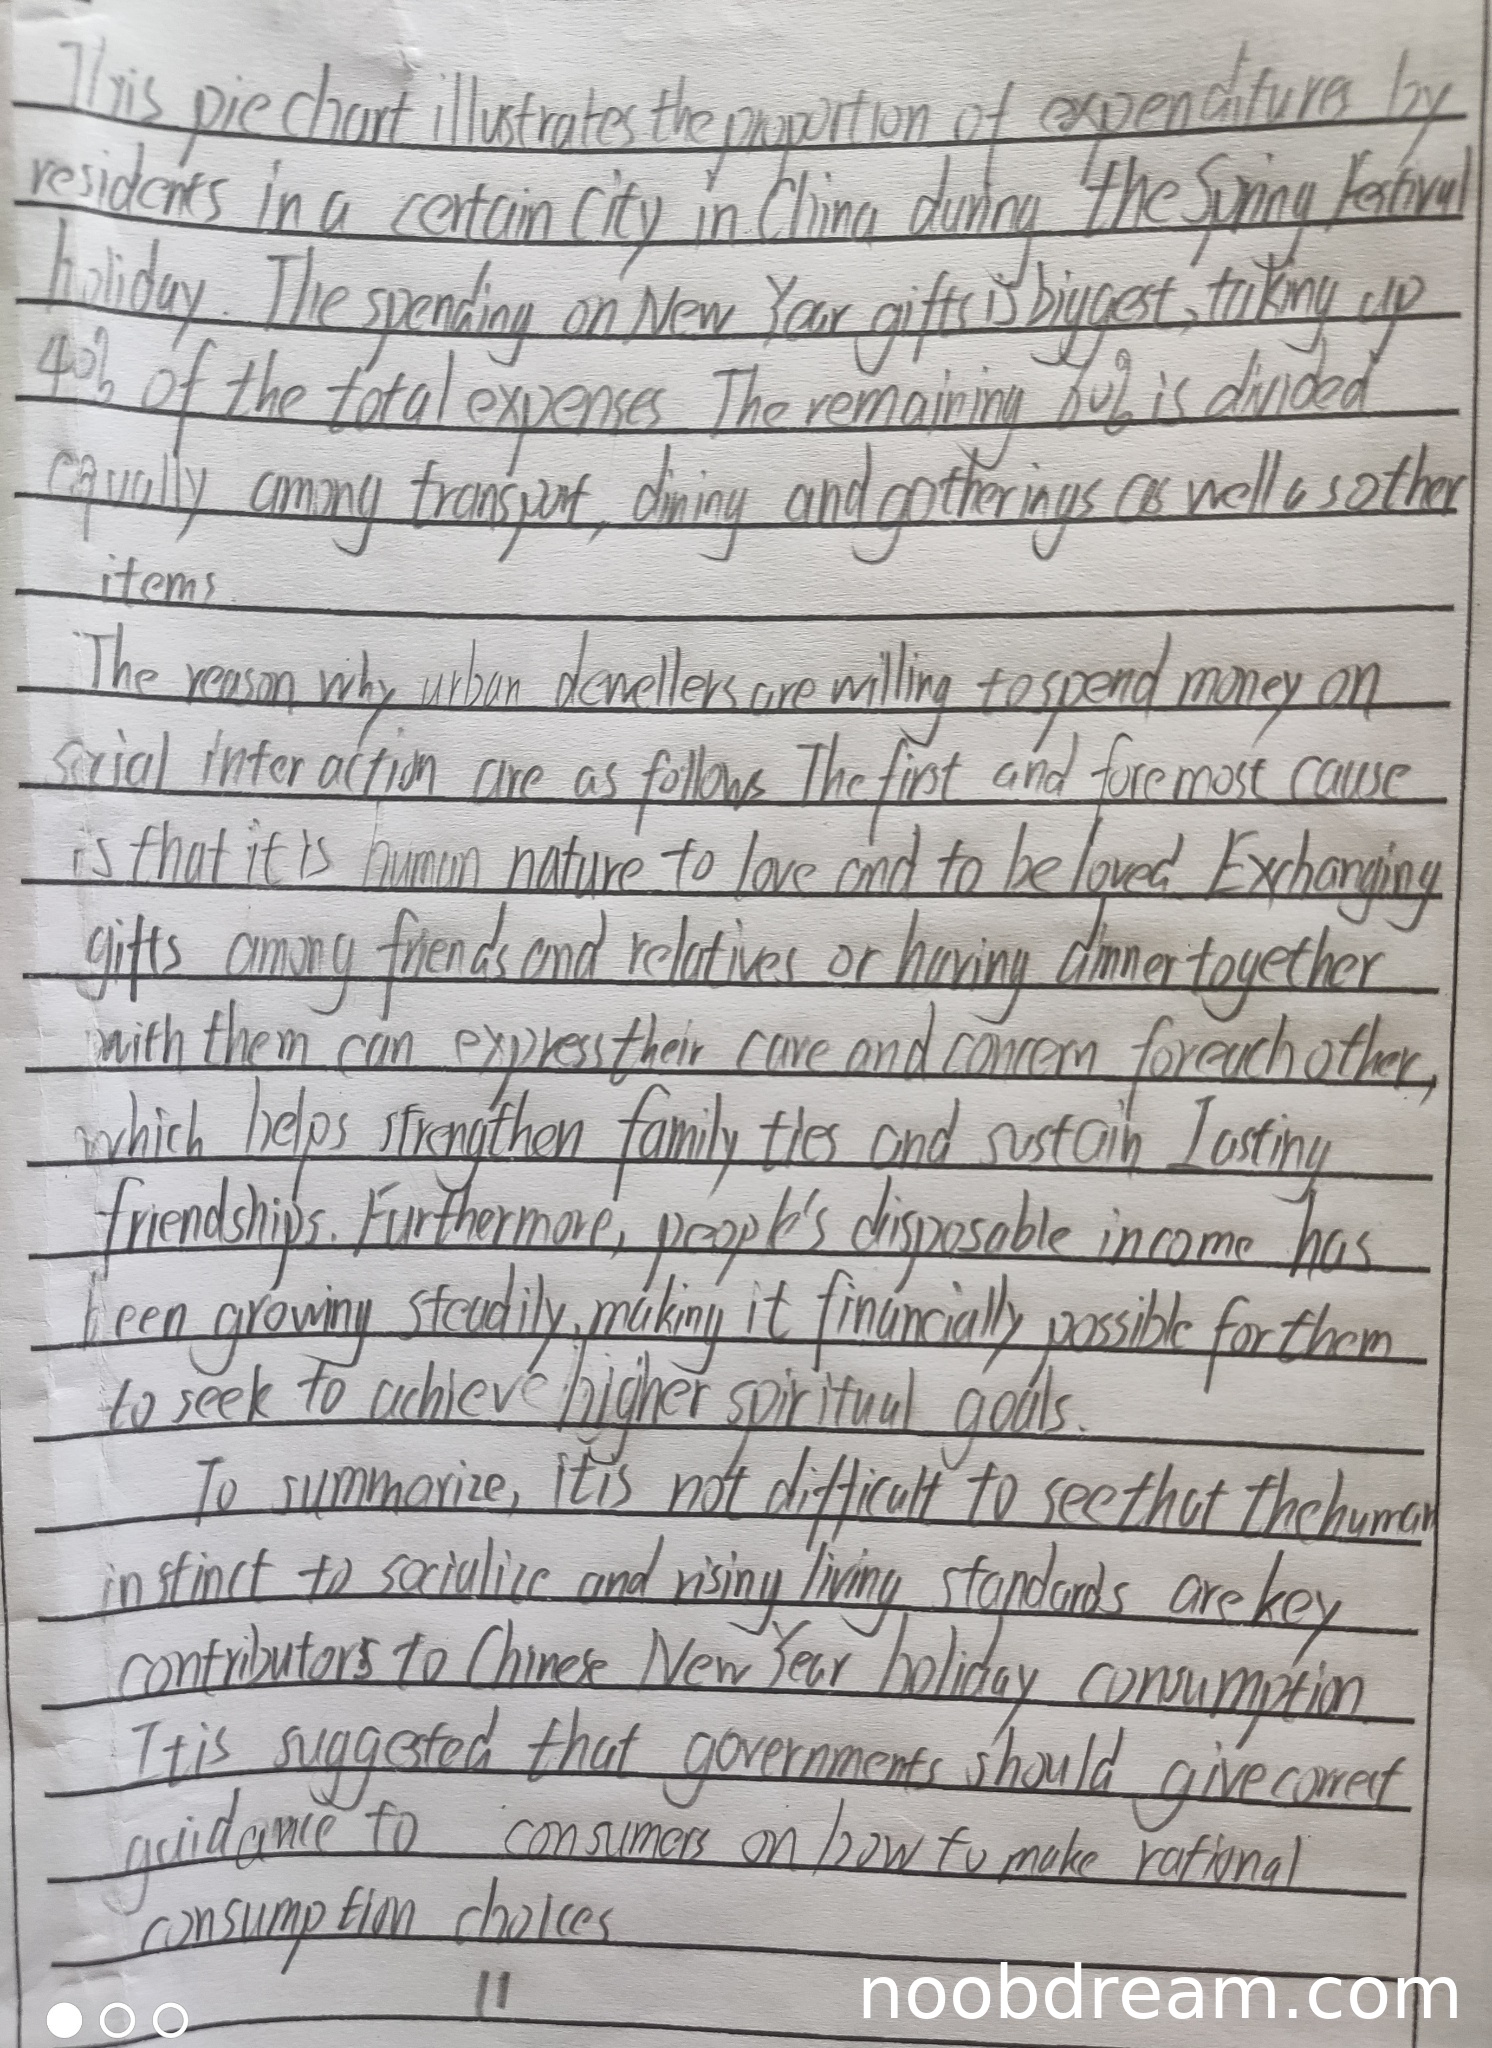 This pie chart illustrates the proportion of expenditures by
residents in a certain city in China during the Spring Festival
holiday. The spending on New Year gifts is biggest, taking up
40% of the total expenses The remaining 60% is divided
equally among transport, dining and gotherings as well as other
items.
The reason why urban denellers are willing to spend money on
social interaction are as follows The first and foremost cause
is that it is human nature to love and to be loved Exchanging
gifts among friends and relatives or having dinner together
with them can express their care and concern for each other,
which helps strengthen family ties and sustain lasting
friendships. Furthermore, people's disposable income has
been growing steadily, making it financially possible for them
to seek to achieve higher spiritual goals.
To summarize, it is not difficult to see that the human
instinct to socialize and rising living standards are key
contributors to Chinese New Year holiday consumption
It is suggested that governments should give correct
guidance to consumers on how to make rational
consumption choices
11
noobdream.com